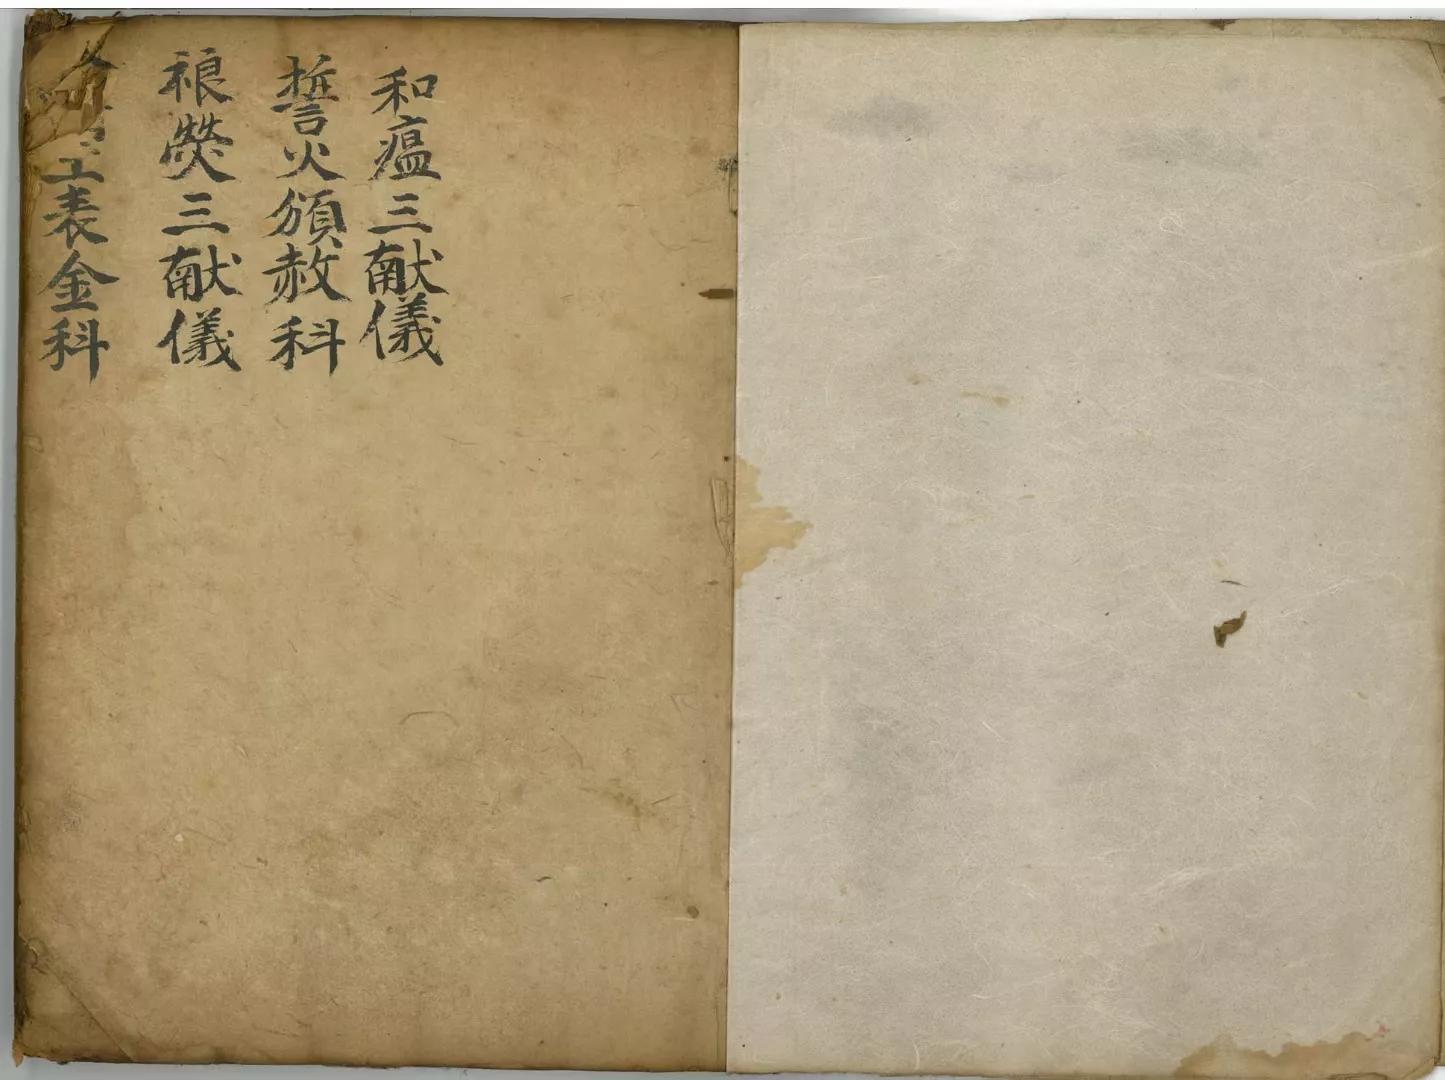 和瘟三献儀
誓火頒赦科
禳熒三献儀
表金科